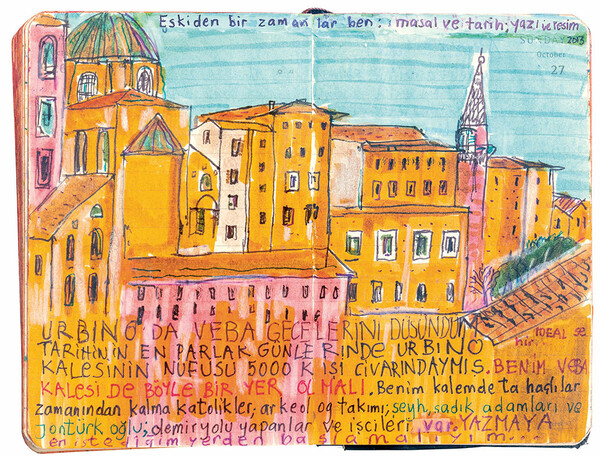 Eskiden bir zamanlar ben: masal ve tarih; yazı ve resim
SUNDAY 2013
October
27
URBINO'DA VEBA GECELERİNİ DÜŞÜNDÜM
IDEAL şe
hir.
TARİHİNİN EN PARLAK GÜNLERİNDE URBINO
KALESİNİN NÜFUSU 5000 KİŞİ CİVARINDAYMIŞ. BENİM VEBA
KALESİ DE BÖYLE BİR YER OLMALI. Benim kalemde haçlılar
zamanından kalma katolikler, arkeolog takımı; şeyh, sadık adamları ve
jöntürk oğlu; demiryolu yapanlar ve işçileri var. YAZMAYA
en istediğim yerden başlamalıyım...